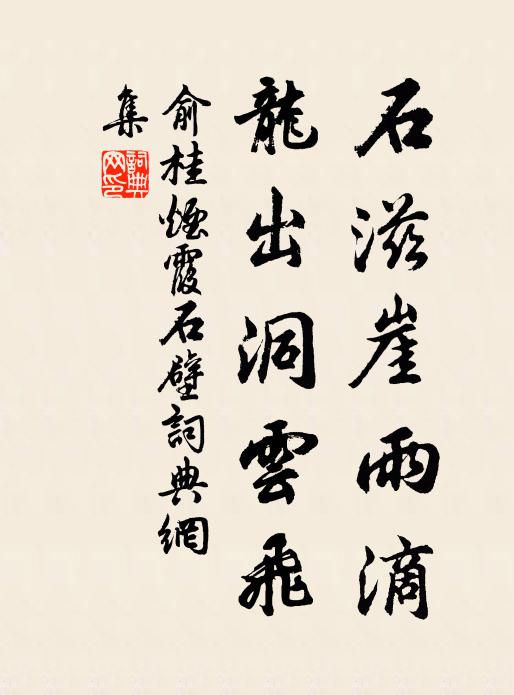 石滋崖雨滴
龍出洞雲飛
俞桂煙霞石壁詞典網
集
詞典网印